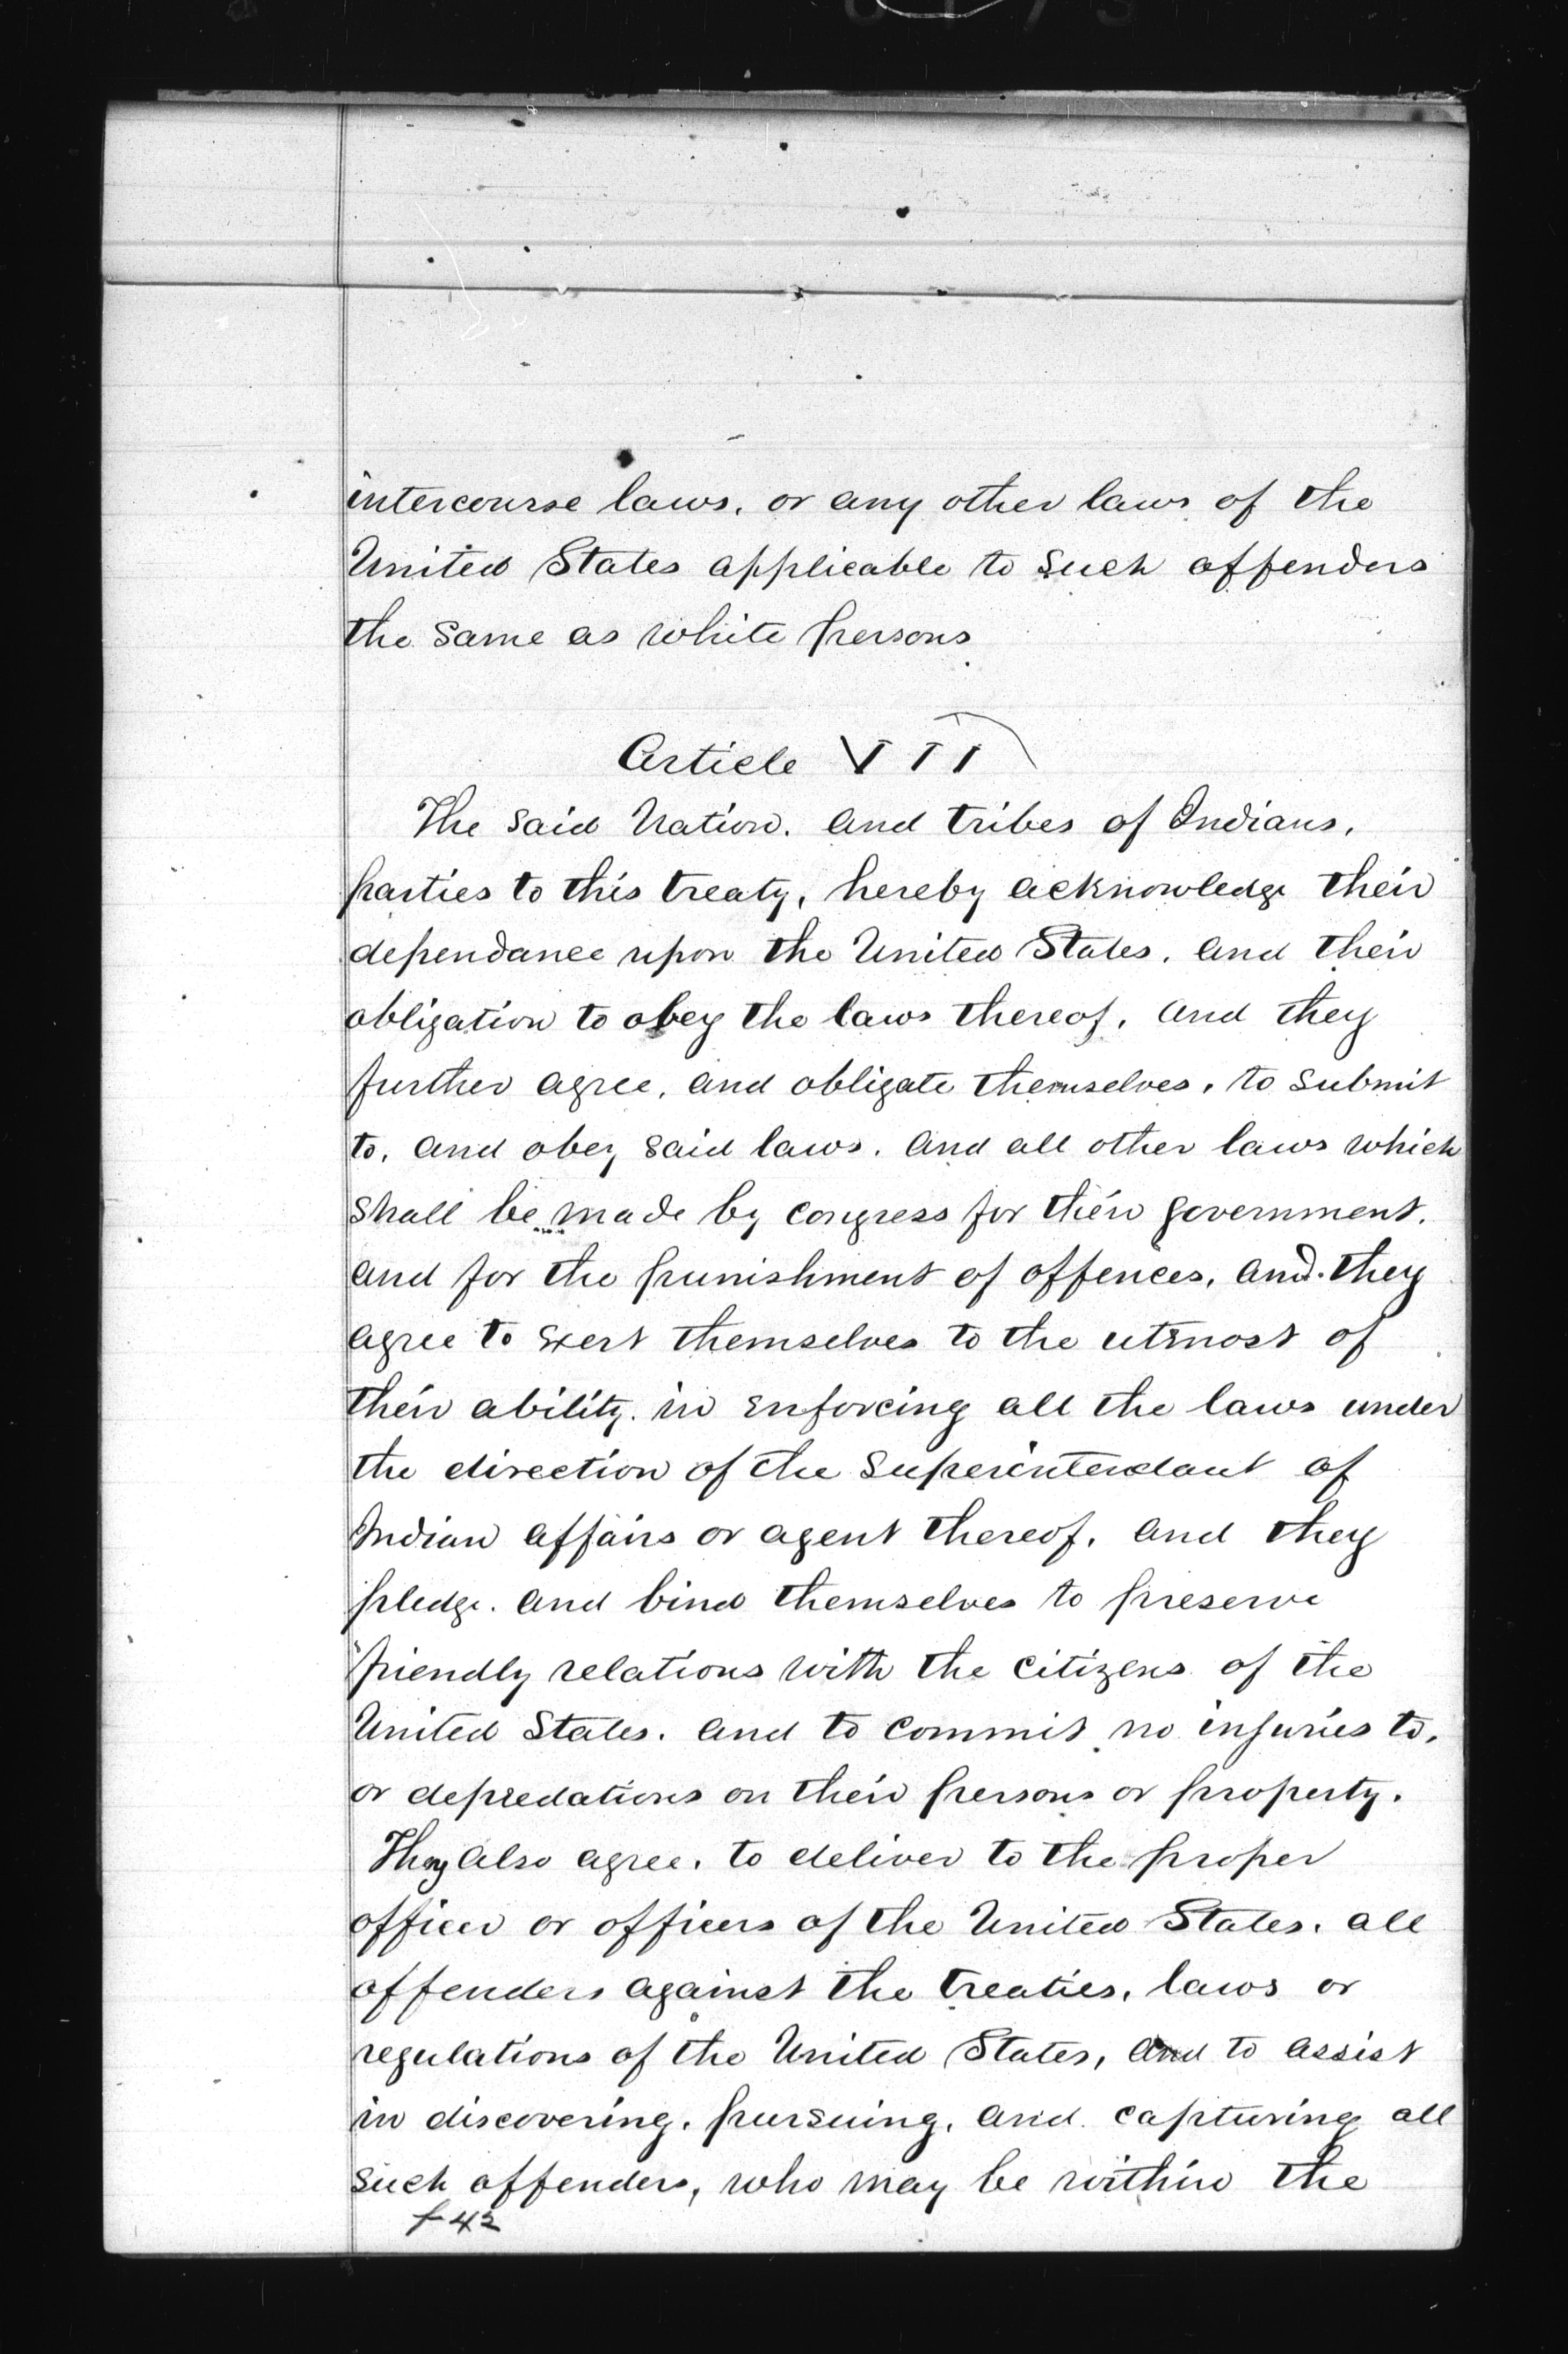 intercourse laws, or any other laws of the
United States applicable to such offenders
the same as white persons
Article VII
The said Nation, and tribes of Indians,
parties to this treaty, hereby acknowledge their
dependance upon the United States, and their
obligation to obey the laws thereof, and they
further agree, and obligate themselves, to submit
to, and obey said laws, and all other laws which
shall be made by congress for their government,
and for the punishment of offences, and they
agree to exert themselves to the utmost of
their ability in enforcing all the laws under
the direction of the Superintendant of
Indian affairs or agent thereof, and they
pledge and bind themselves to preserve
friendly relations with the citizens of the
United States, and to commit no injuries to,
or depredations on their persons or property.
They also agree, to deliver to the proper
officer or officers of the United States, all
offenders against the treaties, laws or
regulations of the United States, and to assist
in discovering, pursuing, and capturing all
such offenders, who may be within the
f 42